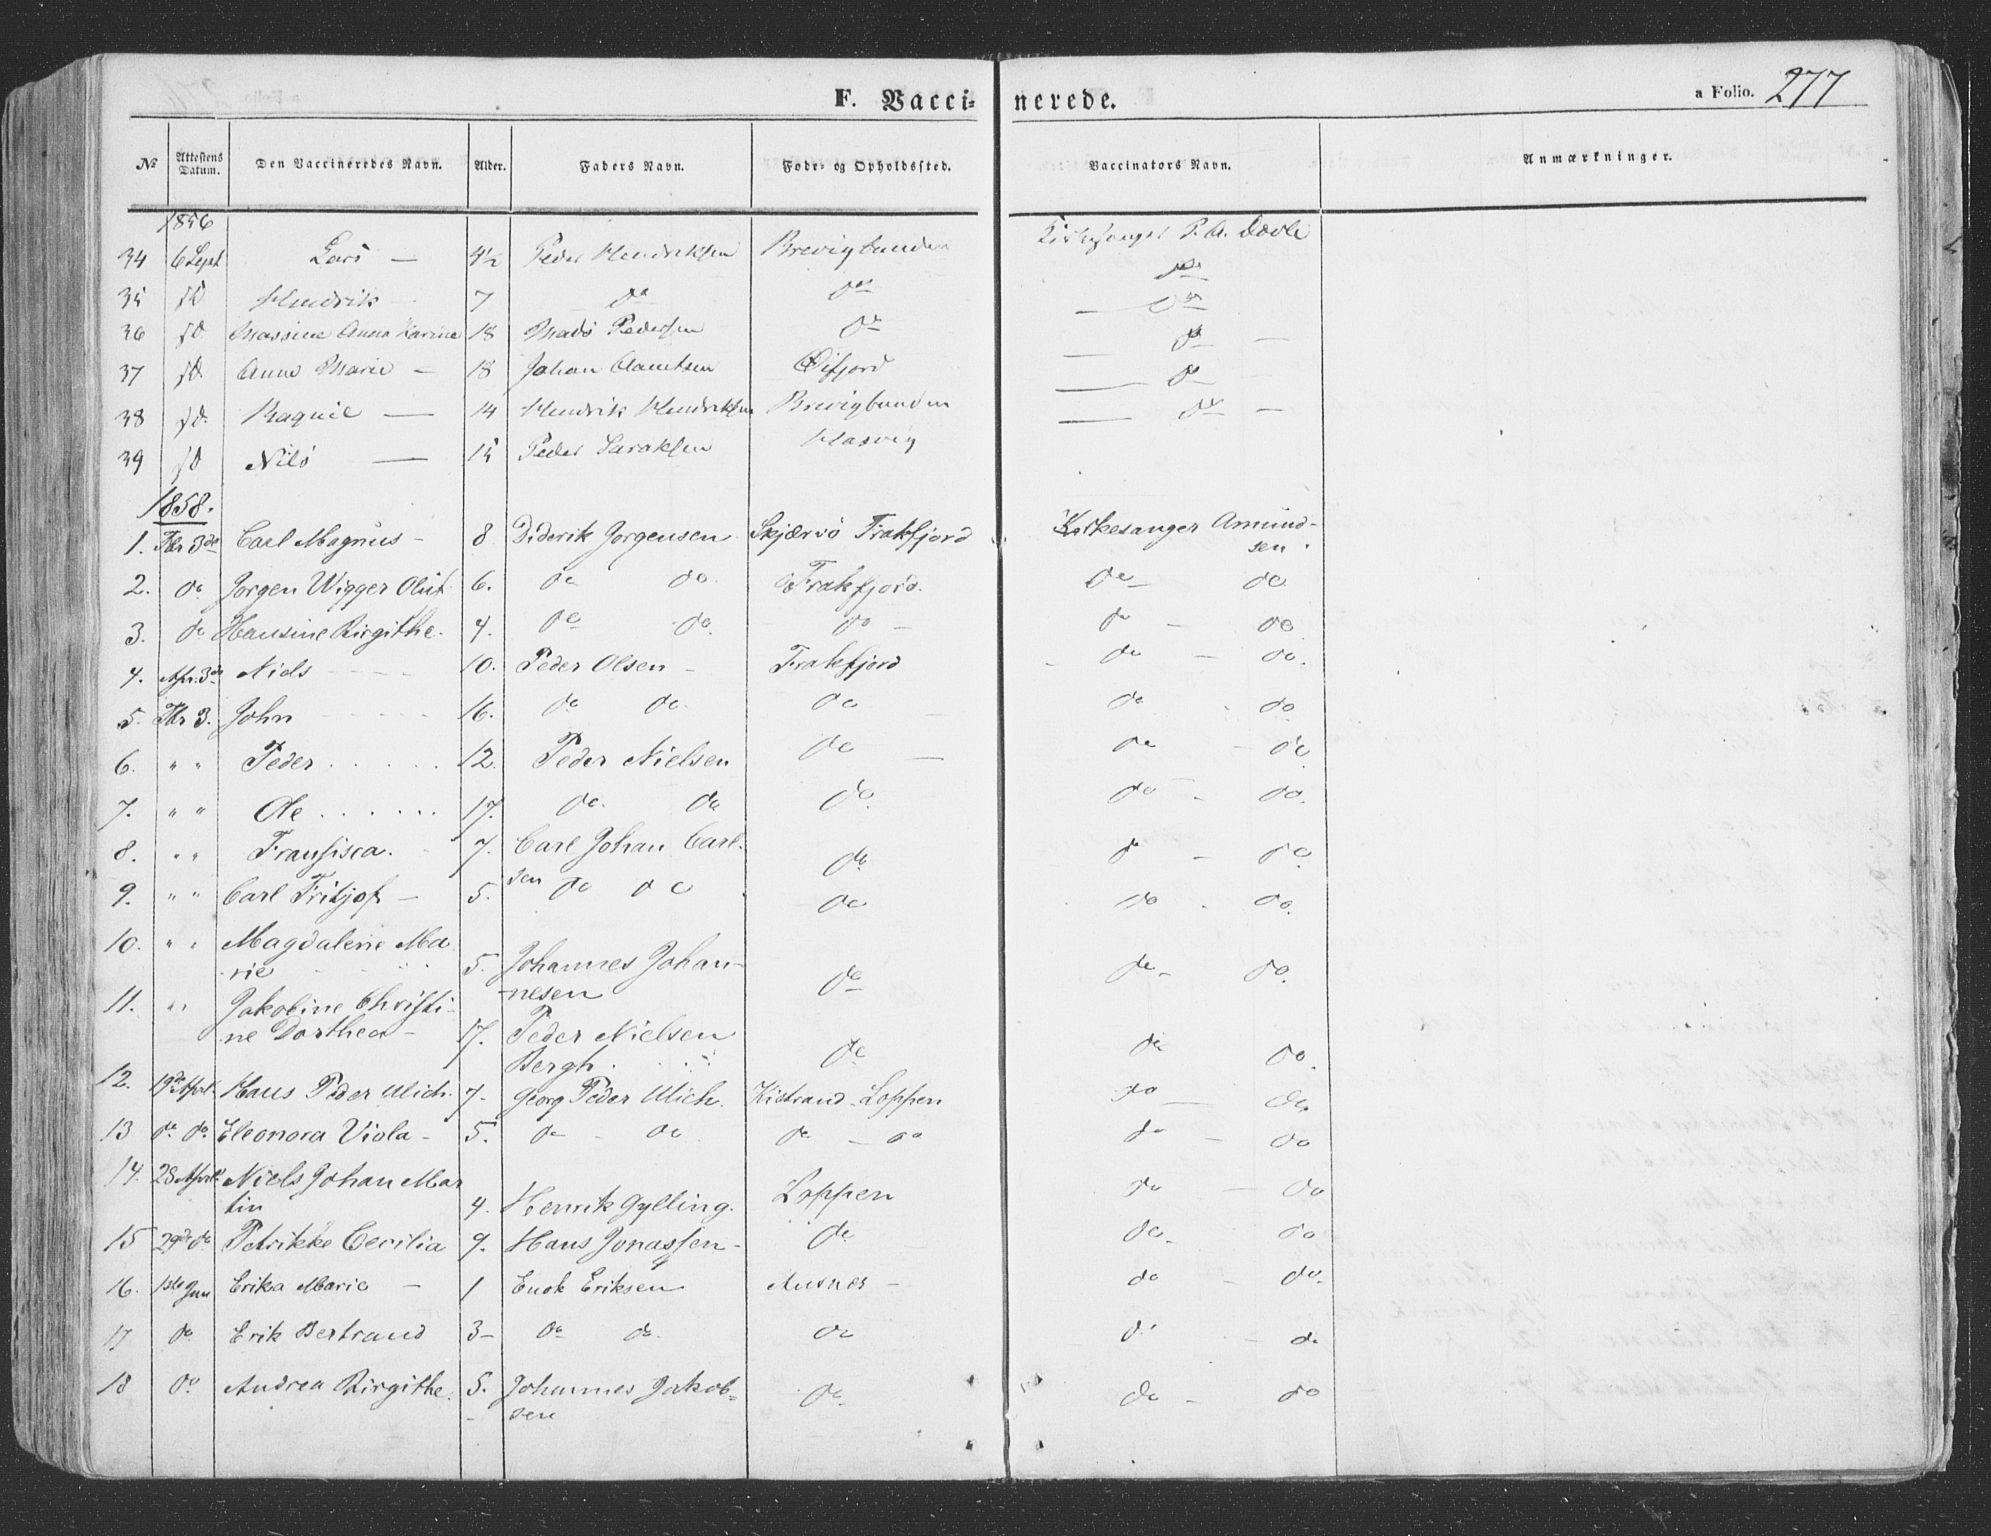 F. Vaccinerede.
a Folio. 277
No Attestens Datum. Den Vaccineredes Navn. Alder. Faders Navn. Føde- og Opholdssted. Vaccinators Navn. Anmærkninger.
1856
34 6 Sept Lars — 4½ Peder Hendriksen Brevigbunden Kirkesanger P. A.
35 sd Hendrik 7 do do do
36 sd Massine Anna Karine 18 Mads Pedersen do — do
37 sd. Anne Marie — 18 Johan Øifjord — do —
38 sd. Ragnil — 14 Hendrik Hendriksen Brevigbunden — do
39 sd Nils — 15 Peder Saraksen Hasvig — do —
1858.
1. Fbr 3de Carl Magnus - 8 Diderik Jørgensen Skjærvø Frakfjord Kirkesanger Amund-
sen.
2. do Jørgen Wigger Oluf 6. do do. Frakfjord. do do
3. do Hansine Birgithe. 4. do do. do — do - do
4. Apr. 3de Niels 10. Peder Olsen - Frakfjord do - do.
5. Fbr 3. John 16. do do. do do do
6. " " Peder 12. Peder Nielsen do — do - do
7. " " Ole 17. do. do do. do - do.
8. " " Fransisca. 7. Carl Johan Carl-
sen do. do - do
9. " " Carl Fritjof — 5. do do do do do.
10. " " Magdalene Ma
rie 5. Johannes Johan-
nesen do do - do.
11. " " Jakobine Christi-
ne Dorthea - 17. Peder Nielsen
Bergh. do do do.
12. 19de April Hans Peder Ulich. 7. Georg Peder Ulich. Kistrand Loppen do — do
13 do do. Eleonora Viola - 5. do - do do — do do - do
14. 28 April Niels Johan Mar
tin 4. Henrik Gylling. Loppen do — do
15 29de do Petrikke Cecilia 9. Hans Jonassen - do do. do
16. 1ste Jun Erika Marie — 1 Enok Eriksen Ausnes - do - do.
17 do Erik Bertrand 3 - do do. do do - do
18 do Andrea Birgithe. 5. Johannes Jakob-
sen do. do - do